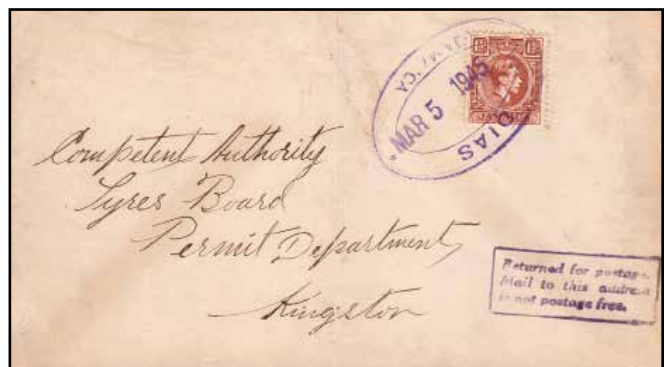 JAMAICA
MAR 5 1945
DIAS
1½ᴰ 1½ᴰ
Competent Authority
Tyres Board
Permit Department
Kingston
Returned for postage.
Mail to this address
is not postage free.